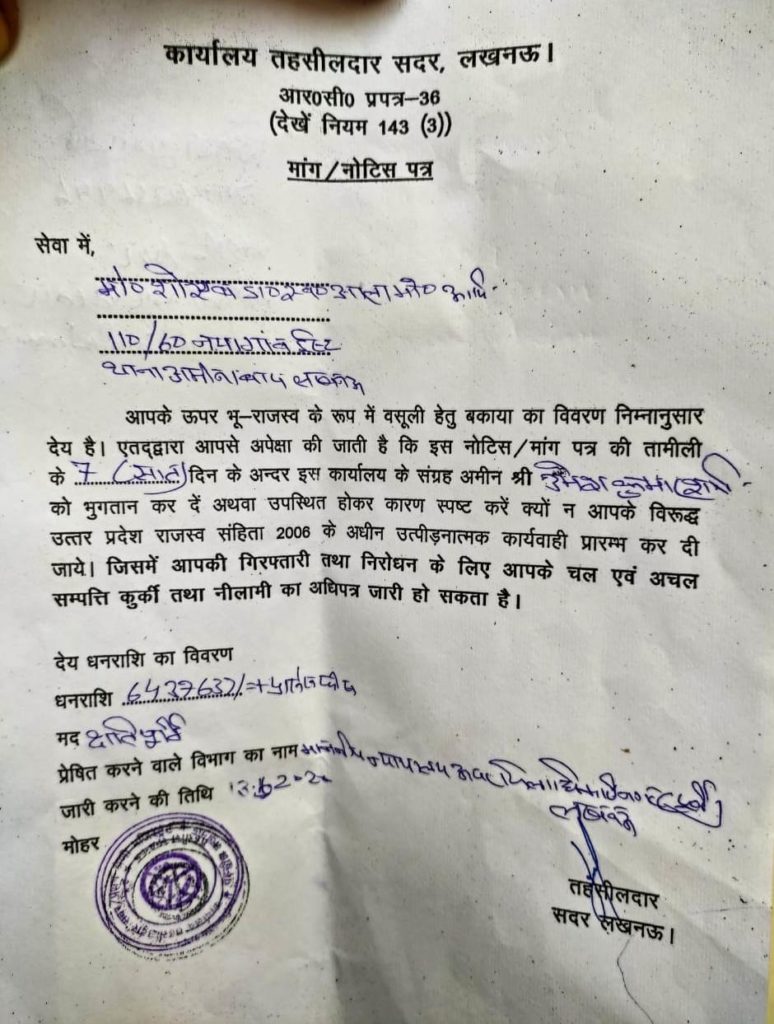 कार्यालय तहसीलदार सदर, लखनऊ।
आर0सी0 प्रपत्र-36
(देखें नियम 143 (3))
मांग/नोटिस पत्र
सेवा में,
मो०
110/60 नयागांव
थाना अमीनाबाद लखनऊ
आपके ऊपर भू-राजस्व के रूप में वसूली हेतु बकाया का विवरण निम्नानुसार
देय है। एतद्द्वारा आपसे अपेक्षा की जाती है कि इस नोटिस/मांग पत्र की तामीली
के 7 (सात) दिन के अन्दर इस कार्यालय के संग्रह अमीन श्री उमेश कुमार
को भुगतान कर दें अथवा उपस्थित होकर कारण स्पष्ट करें क्यों न आपके विरूद्ध
उत्तर प्रदेश राजस्व संहिता 2006 के अधीन उत्पीड़नात्मक कार्यवाही प्रारम्भ कर दी
जाये। जिसमें आपकी गिरफ्तारी तथा निरोधन के लिए आपके चल एवं अचल
सम्पत्ति कुर्की तथा नीलामी का अधिपत्र जारी हो सकता है।
देय धनराशि का विवरण
धनराशि 6437637/=+
मद क्षतिपूर्ति
प्रेषित करने वाले विभाग का नाम न्यायालय अपर जिलाधिकारी
लखनऊ
जारी करने की तिथि
मोहर
तहसीलदार
सदर लखनऊ।